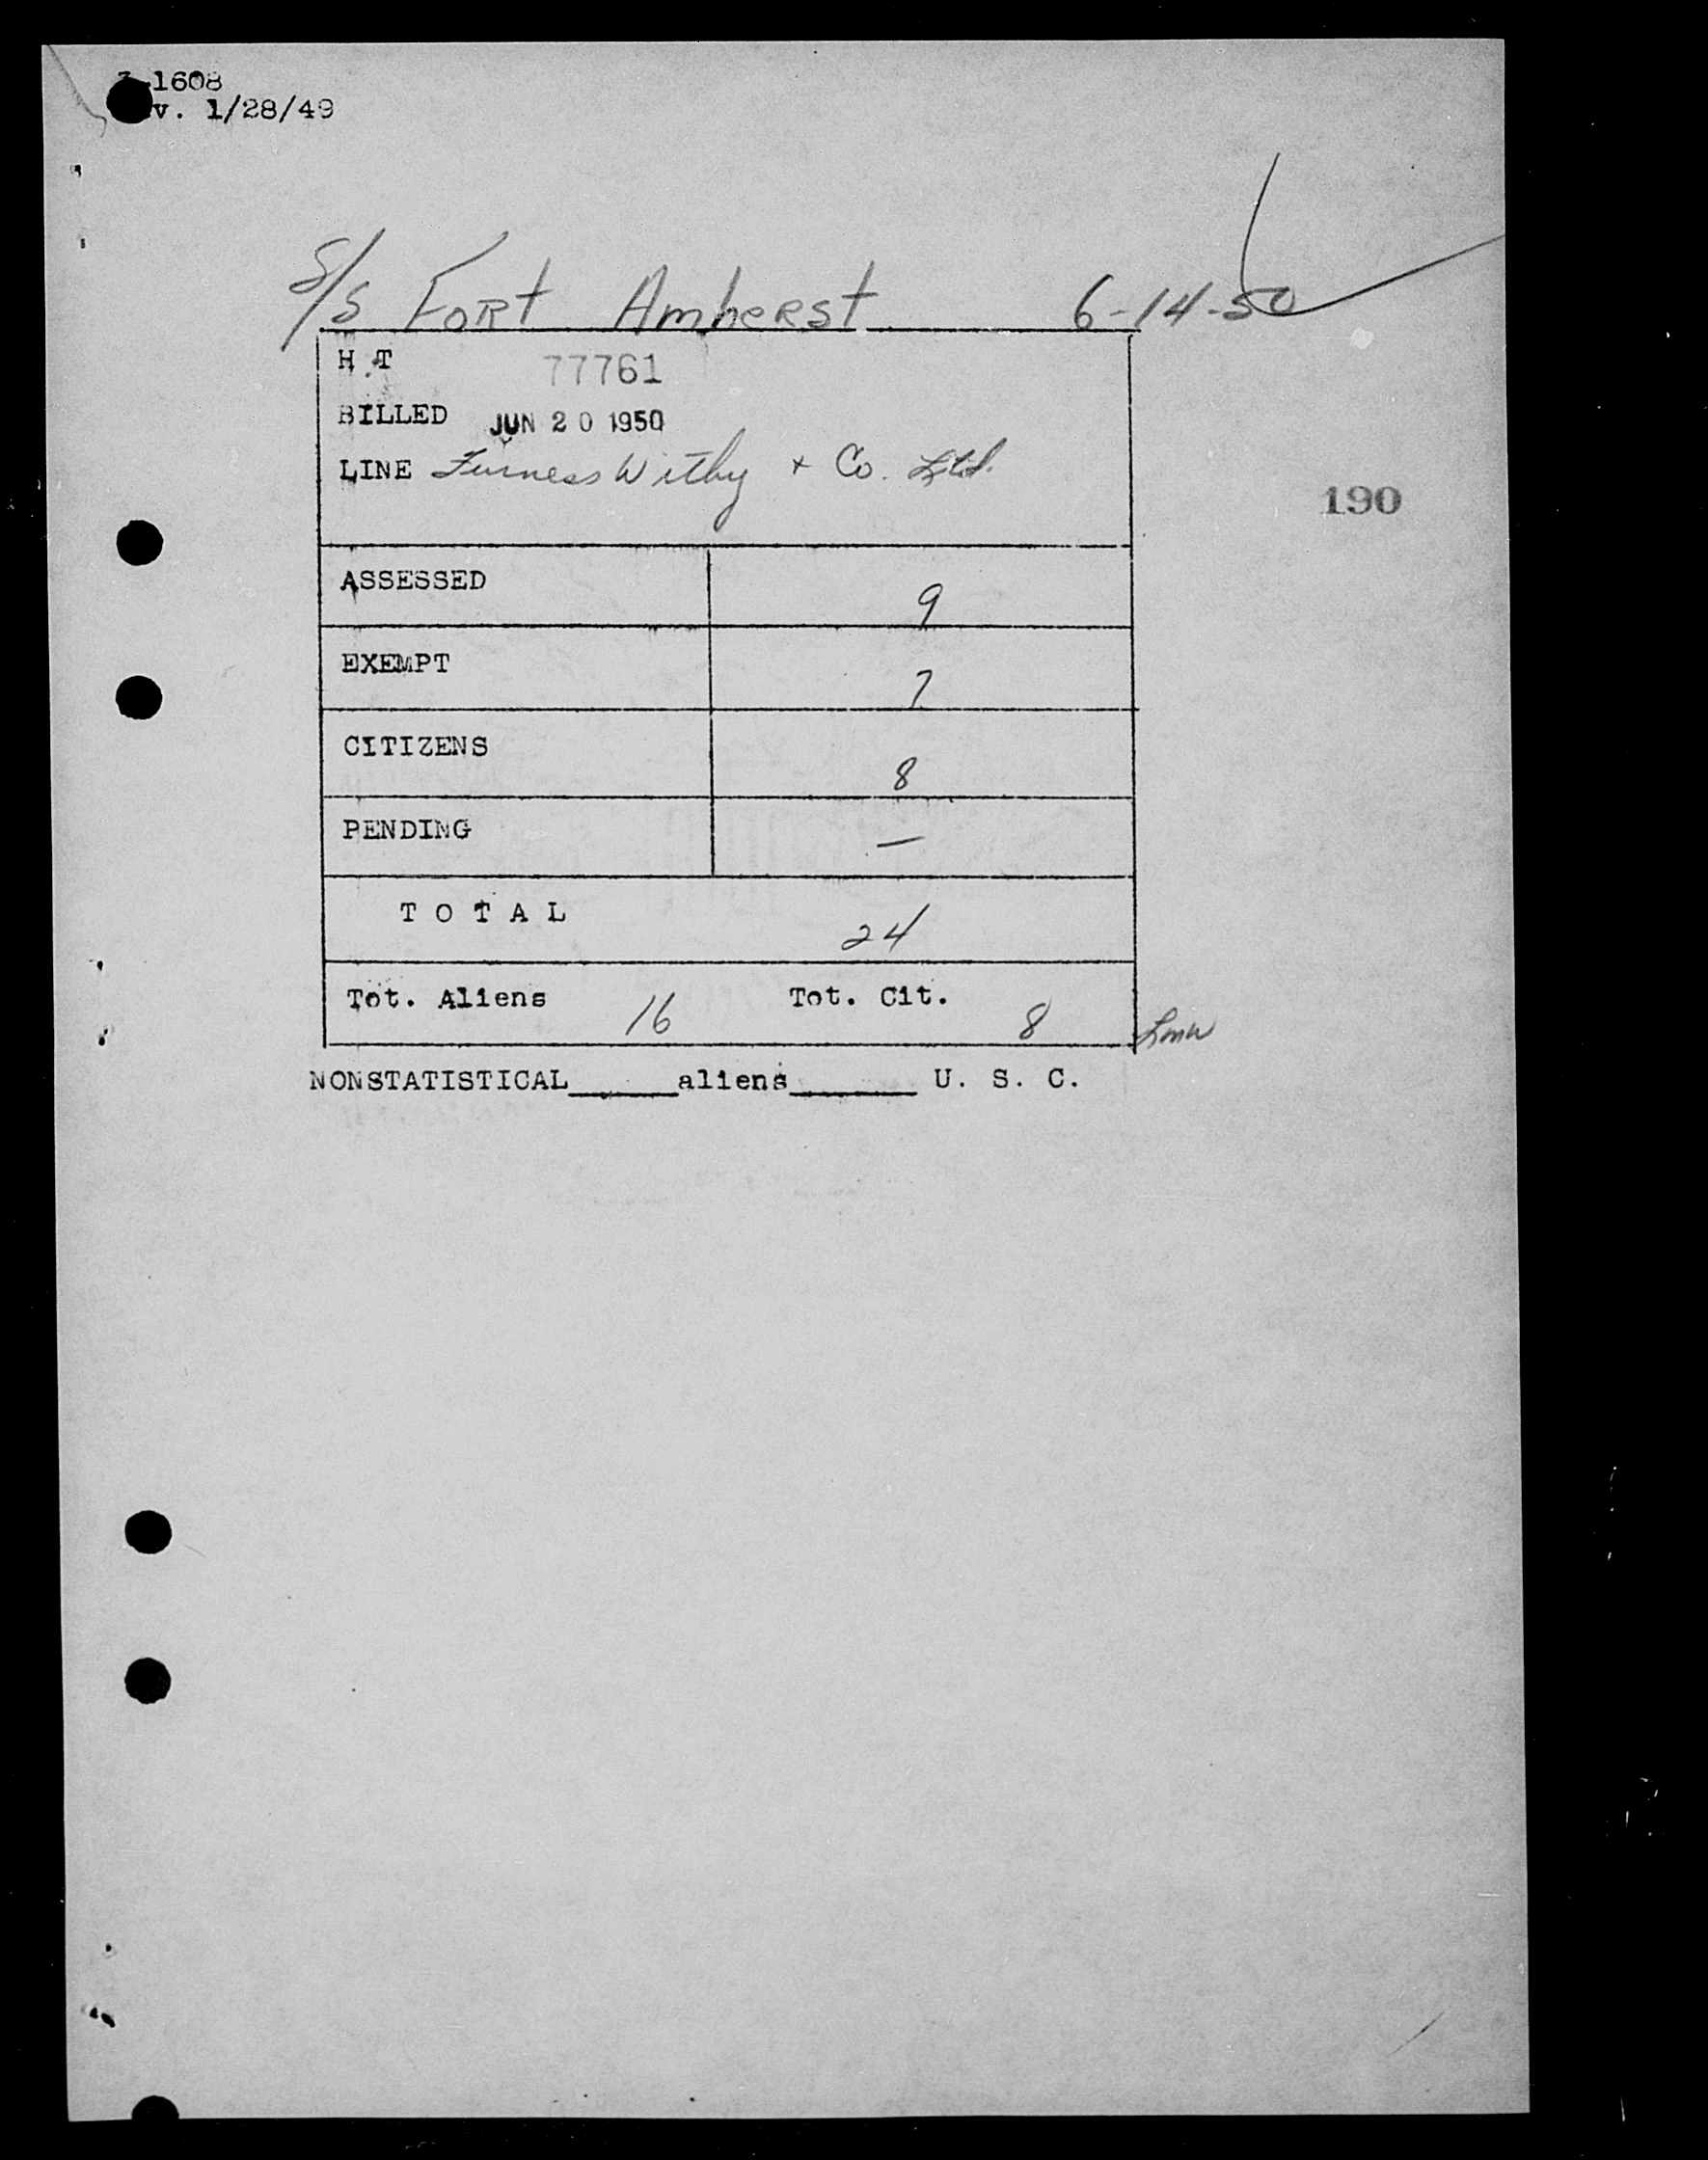 -1608
v. 1/28/49
S/S Fort Amherst 6-14-50
H.T 77761
BILLED JUN 20 1950
LINE Furness Withy + Co. Ltd.
190
ASSESSED 9
EXEMPT 7
CITIZENS 8
PENDING —
TOTAL 24
Tot. Aliens 16 Tot. Cit. 8
NONSTATISTICAL______aliens_______ U. S. C.